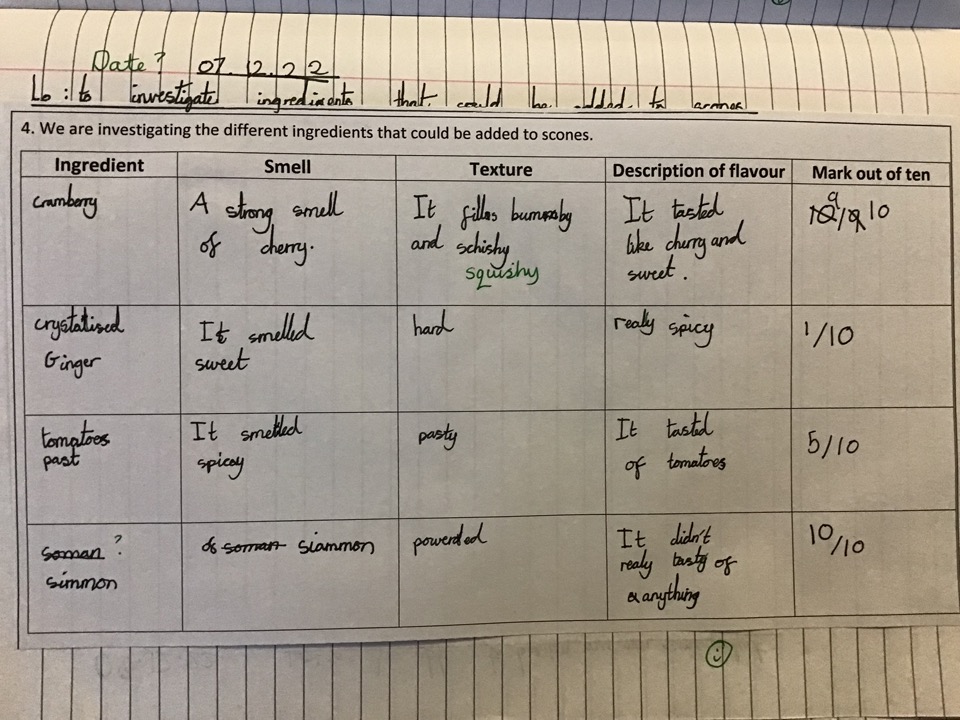 Date? 07.12.22
Lo: to investigate ingredients that could be added to
4. We are investigating the different ingredients that could be added to scones.
Ingredient Smell Texture Description of flavour Mark out of ten
cramberry A strong smell It It tasted 9/10
of cherry. and schishy like cherry and
squishy sweet.
crystatised It smelled hard realy spicy 1/10
Ginger sweet
tomatoes It smelled pasty It tasted 5/10
past spicey of tomatoes
soman ? of soman siammon powerded It didn't 10/10
simmon realy tasty of
anything